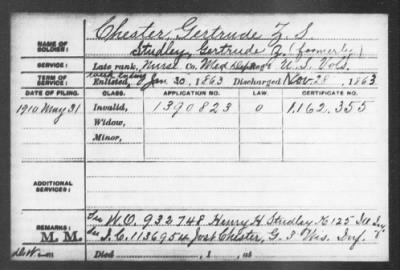 Chester, Gertrude Z. S.
NAME OF SOLDIER: Studley, Gertrude Z. (formerly)
SERVICE: Late rank, Nurse Co. Med Dept Reg't U.S. Vols.
TERM OF SERVICE: Enlisted, Jan 30, 1863 Discharged Nov. 28, 1863
DATE OF FILING. CLASS. APPLICATION NO. LAW. CERTIFICATE NO.
1910 May 31 Invalid, 1390823 0 1.162.355
Widow,
Minor,
ADDITIONAL SERVICES:
W.O. 932748 Henry H Studley K 125 Ill Inf
REMARKS: M.M. I.C. 1136954 Chester, G. 3 Wis. Inf.
Died , 1 , at